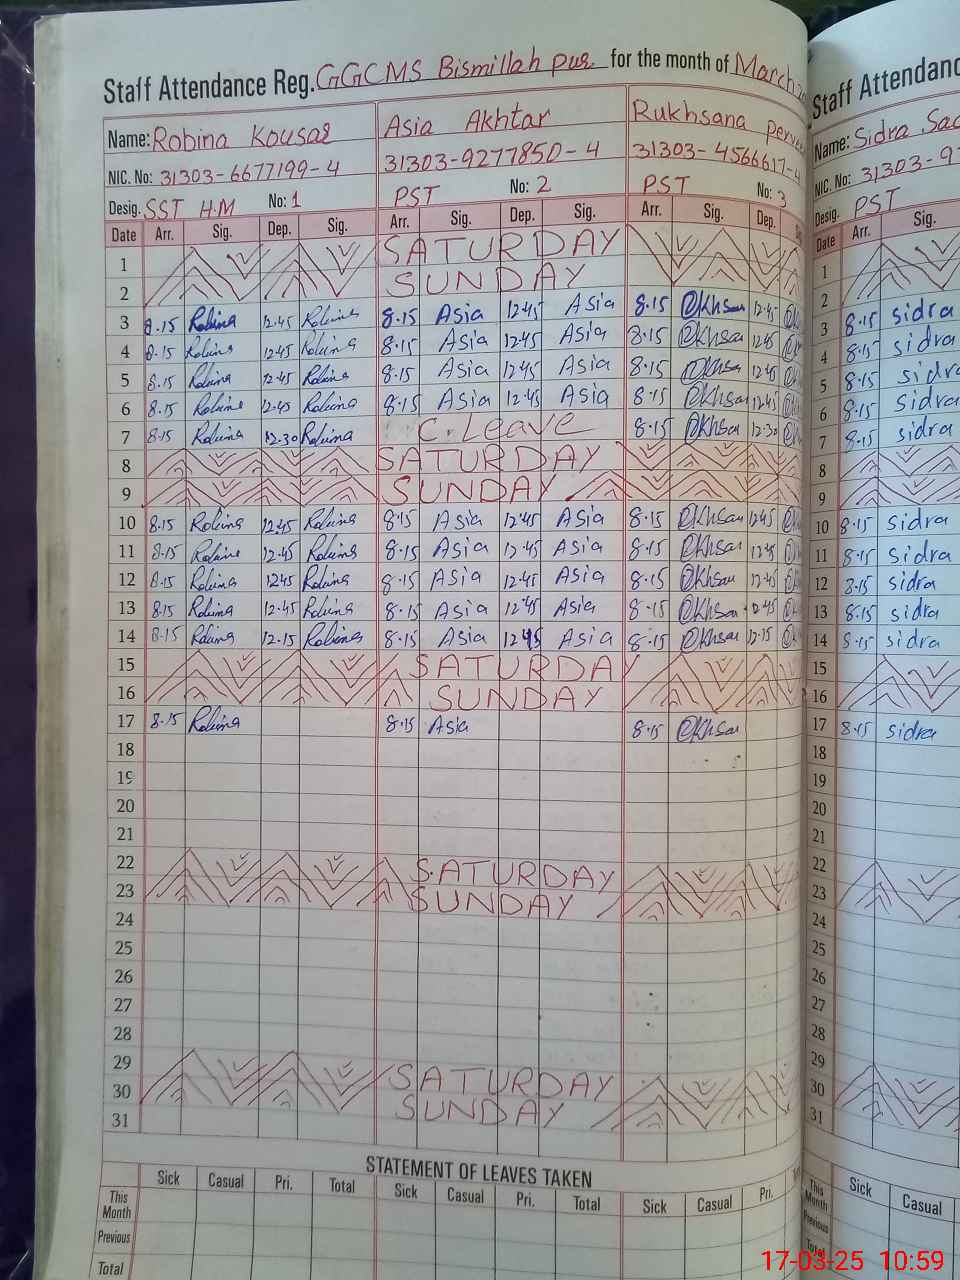 Staff Attendance Reg. GGCMS Bismillah pur for the month of March
Name: Robina Kousar Asia Akhtar Rukhsana
NIC. No: 31303-6677199-4 31303-9277850-4 31303-4566617-4
Desig. SST H.M No: 1 PST No: 2 PST No: 3
Date Arr. Sig. Dep. Sig. Arr. Sig. Dep. Sig. Arr. Sig. Dep.
1 SATURDAY
2 SUNDAY
3 8.15 Robina 12.45 Robina 8.15 Asia 12.45 Asia 8.15 Rkhsan 12.45
4 8.15 Robina 12.45 Robina 8.15 Asia 12.45 Asia 8.15 Rkhsan 12.45
5 8.15 Robina 12.45 Robina 8.15 Asia 12.45 Asia 8.15 Rkhsan 12.45
6 8.15 Robina 12.45 Robina 8.15 Asia 12.45 Asia 8.15 Rkhsan 12.45
7 8.15 Robina 12.30 Robina C. Leave 8.15 Rkhsan 12.30
8 SATURDAY
9 SUNDAY
10 8.15 Robina 12.45 Robina 8.15 Asia 12.45 Asia 8.15 Rkhsan 12.45
11 8.15 Robina 12.45 Robina 8.15 Asia 12.45 Asia 8.15 Rkhsan 12.45
12 8.15 Robina 12.45 Robina 8.15 Asia 12.45 Asia 8.15 Rkhsan 12.45
13 8.15 Robina 12.45 Robina 8.15 Asia 12.45 Asia 8.15 Rkhsan 12.45
14 8.15 Robina 12.15 Robina 8.15 Asia 12.45 Asia 8.15 Rkhsan 12.15
15 SATURDAY
16 SUNDAY
17 8.15 Robina 8.15 Asia 8.15 Rkhsan
18
19
20
21
22 SATURDAY
23 SUNDAY
24
25
26
27
28
29 SATURDAY
30 SUNDAY
31
STATEMENT OF LEAVES TAKEN
Sick Casual Pri. Total Sick Casual Pri. Total Sick Casual Pri.
This Month
Previous
Total
Staff Attendanc
Name: Sidra
NIC. No: 31303-9
Desig. PST
Date Arr. Sig.
1
2
3 8.15 sidra
4 8.15 sidra
5 8.15 sidra
6 8.15 sidra
7 8.15 sidra
8
9
10 8.15 sidra
11 8.15 sidra
12 8.15 sidra
13 8.15 sidra
14 8.15 sidra
15
16
17 8.15 sidra
18
19
20
21
22
23
24
25
26
27
28
29
30
31
Sick Casual
This Month
Previous
Total
17-03-25 10:59